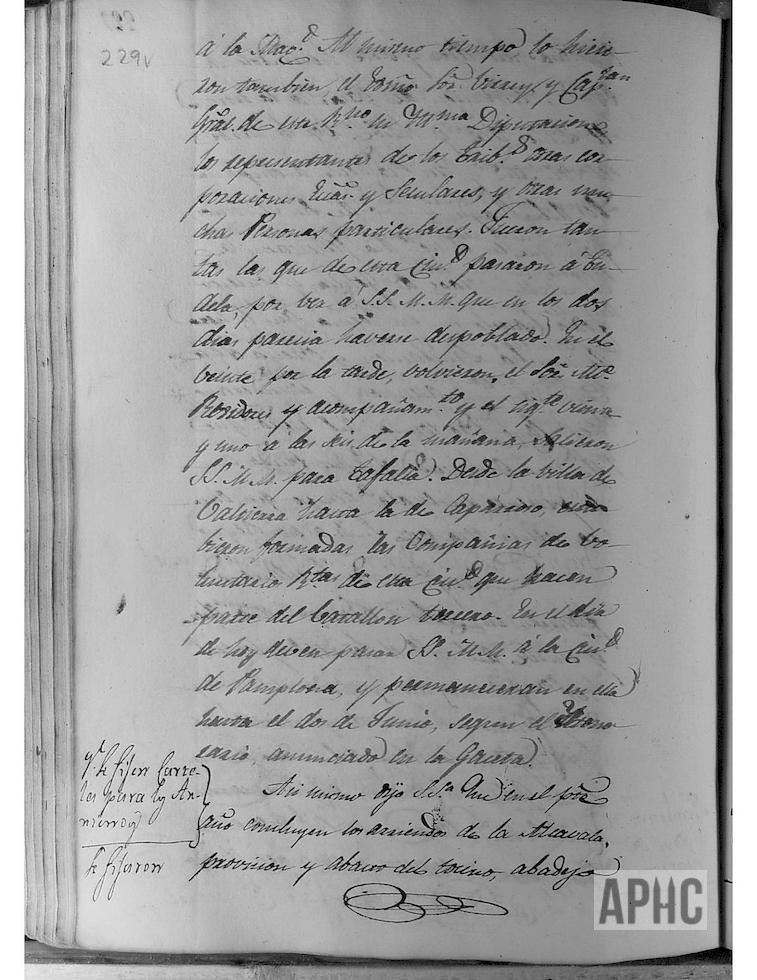 229v
á la Mag.d Al mismo tiempo lo hicie-
ron tambien, el Exmo Sor. Virrey, y Cap.tan
Gral. de este R.no su Yll.ma Diputacion,
los representantes de los Trib.s otras cor-
poraciones Ecas. y Seculares, y otras mu-
chas Personas particulares. Fueron tan-
tas las que de esta Ciu.d pasaron á Tu-
dela, por ver á S.S. M.M. que en los dos
dias parecia haverse despoblado. En el
veinte por la tarde, volvieron, el Sor. Al.e
Regidores y acompañam.to y el sig.te viein-
y uno á las seis de la mañana, salieron
SS. M.M. para Tafalla. Desde la Villa de
Valtierra hasta la de Caparroso, estu-
bieron formadas las Compañias de Vo-
luntarios R.tas de esta Ciu.d que hacen
parte del Batallon tercero. En el dia
de hoy deven pasar SS. M.M. á la Ciu.d
de Pamplona, y permaneceran en ella
hasta el dos de Junio, segun el Ytine-
rario, anunciado en la Gaceta.
Asi mismo dijo S.Sa. Que en el pres.te
año concluyen los arriendos de la Alcavala,
provision y abasto del tocino, abadejo
q.e se fijen Carte-
les para los Ar-
riendos
Se fijaron
APHC